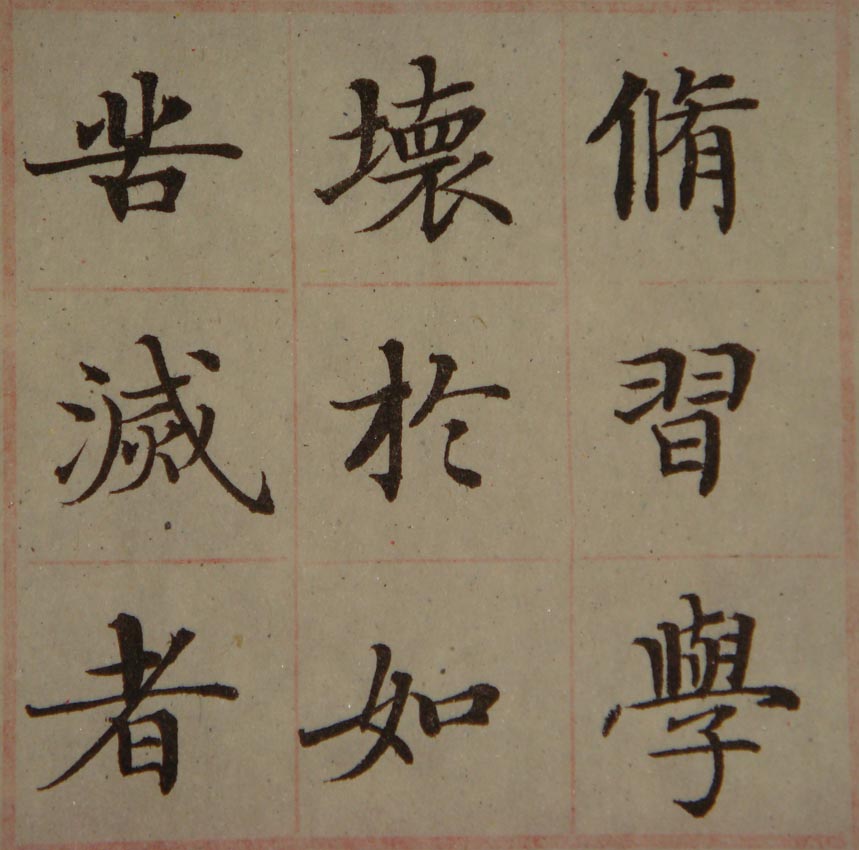 脩習學
壞於如
苦滅者